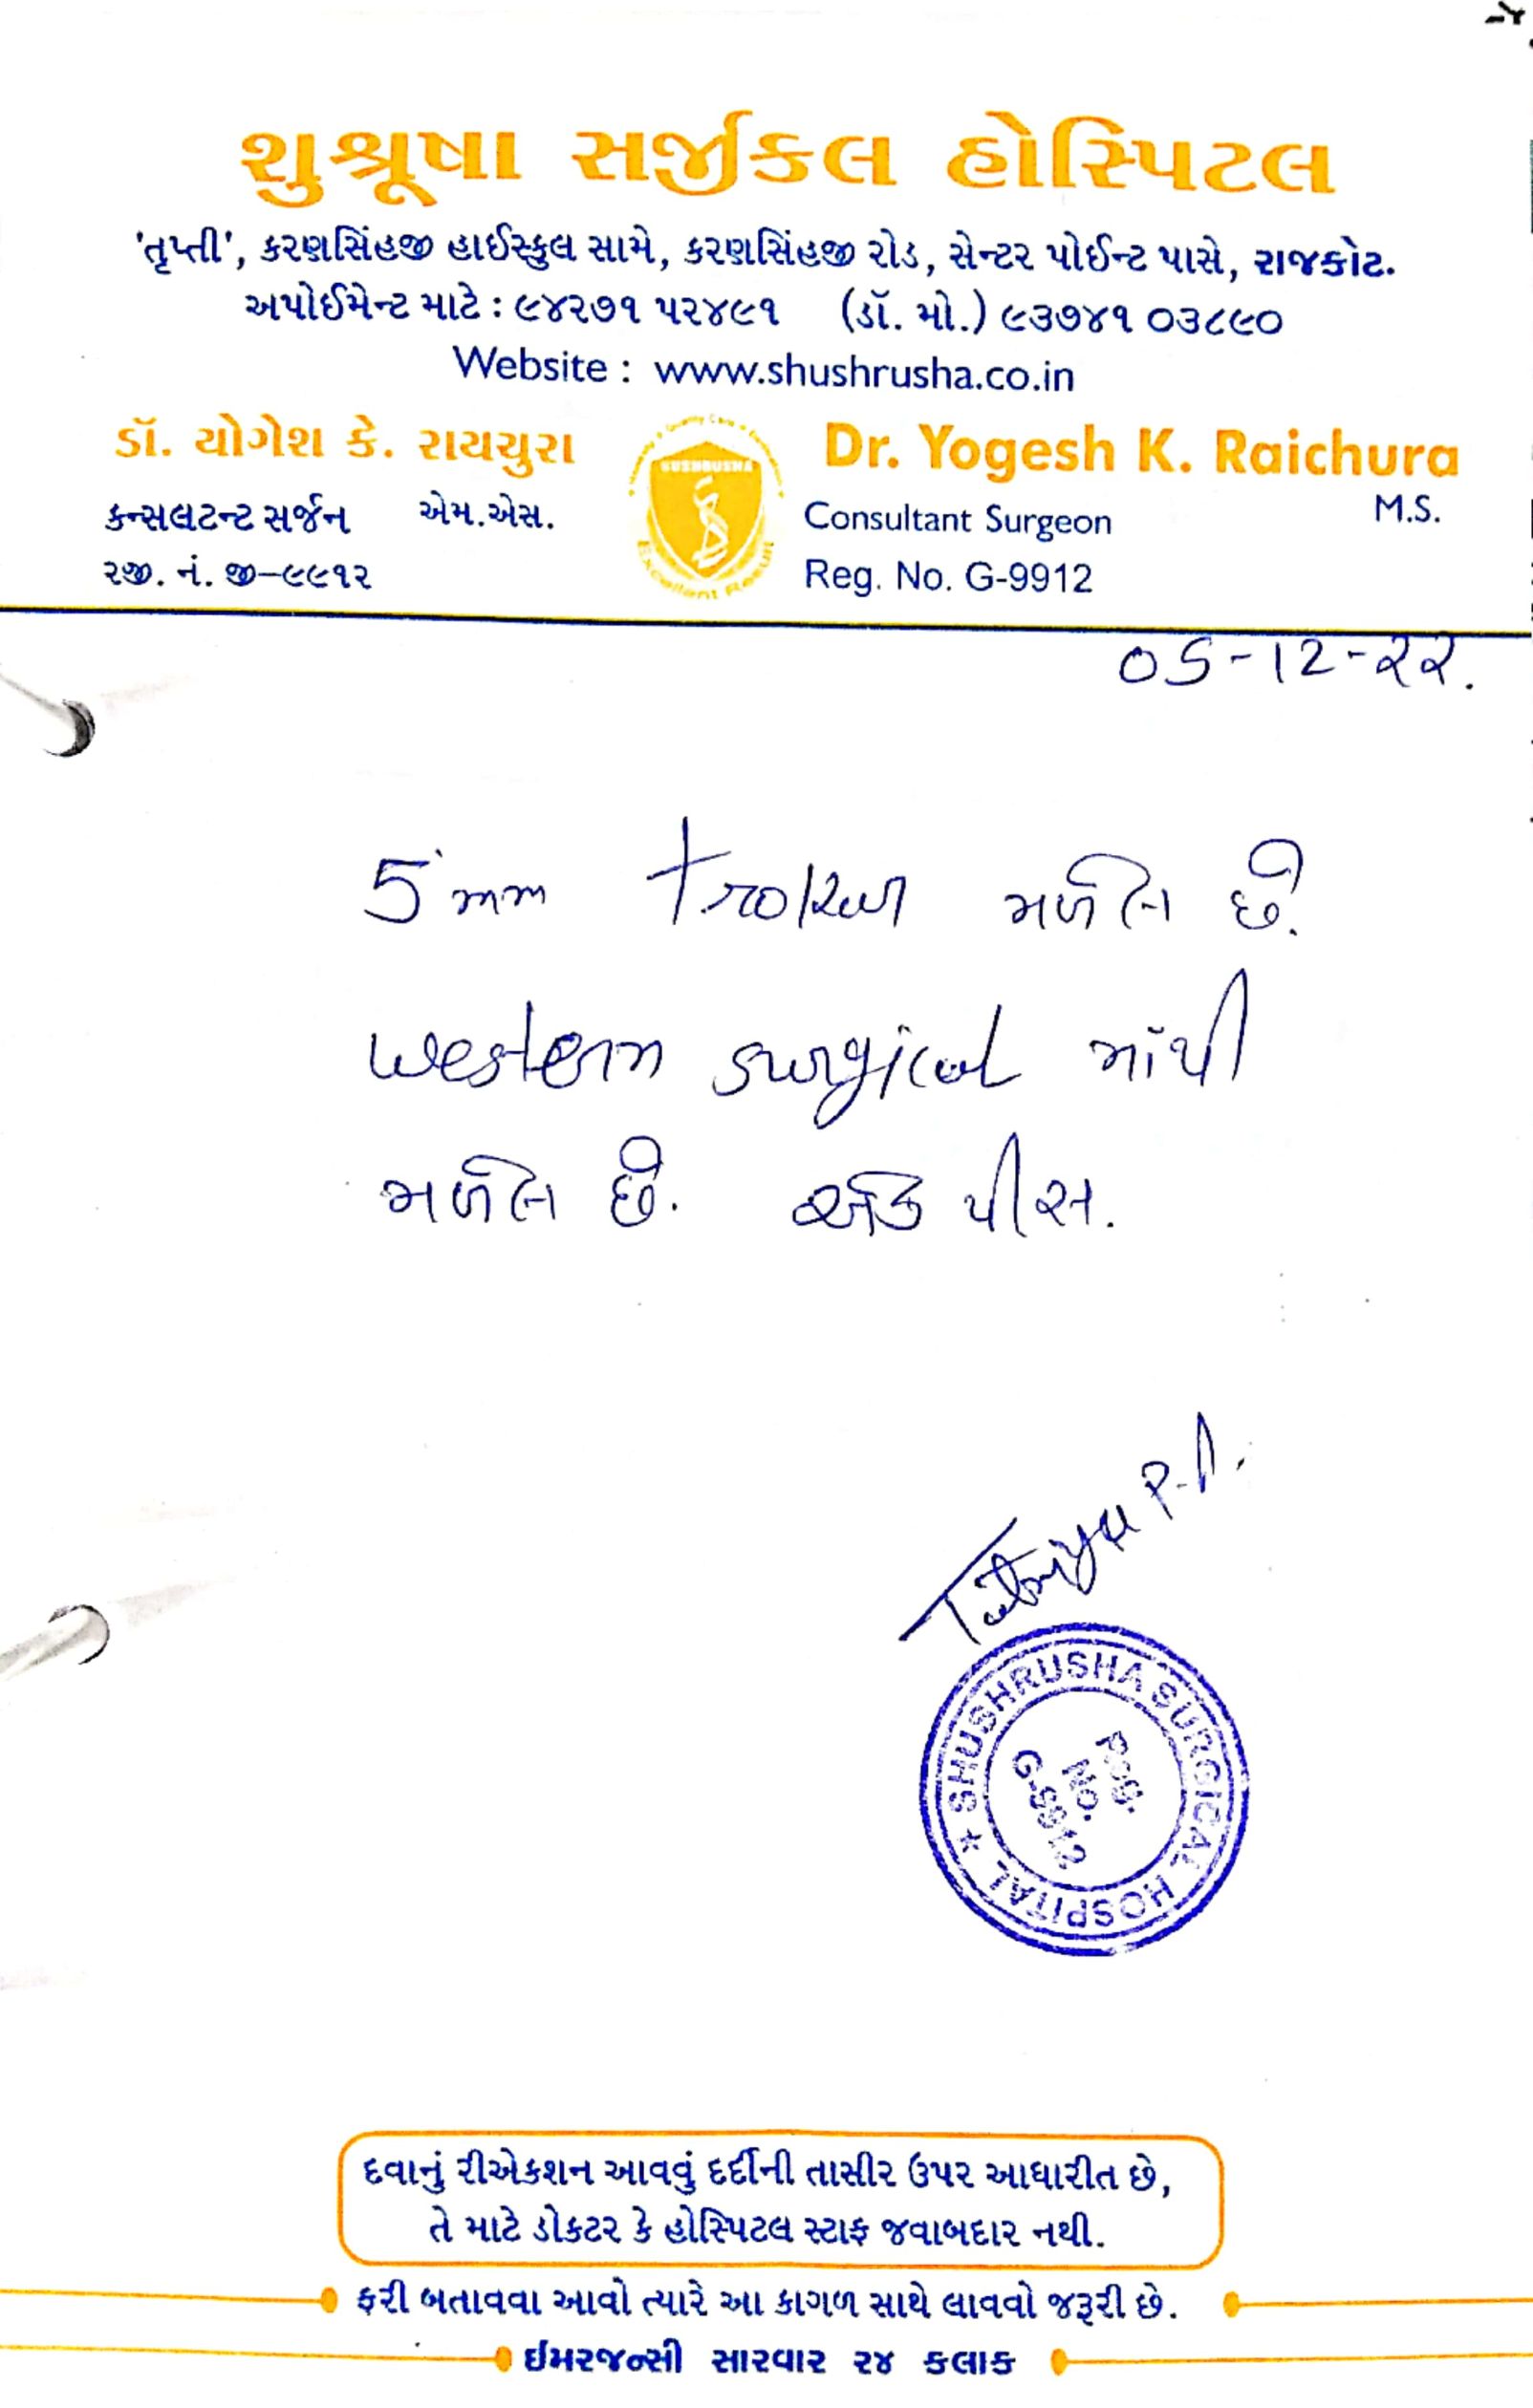 શુશ્રૂષા સર્જીકલ હોસ્પિટલ
'તૃપ્તી', કરણસિંહજી હાઈસ્કુલ સામે, કરણસિંહજી રોડ, સેન્ટર પોઈન્ટ પાસે, રાજકોટ.
અપોઈમેન્ટ માટે : ૯૪૨૭૧ ૫૨૪૯૧ (ડૉ. મો.) ૯૩૭૪૧ ૦૩૮૯૦
Website : www.shushrusha.co.in
ડૉ. યોગેશ કે. રાયચુરા
કન્સલટન્ટ સર્જન એમ.એસ.
રજી. નં. જી-૯૯૧૨
SUSHRUSHA
Excellent Result
Dr. Yogesh K. Raichura
Consultant Surgeon M.S.
Reg. No. G-9912
05-12-૨૨.
5 mm મળેલ છે.
western surgical માંથી
મળેલ છે. એક પીસ.
P.A.
SHUSHRUSHA SURGICAL HOSPITAL
Reg. No. G-9912
દવાનું રીએકશન આવવું દર્દીની તાસીર ઉપર આધારીત છે,
તે માટે ડોકટર કે હોસ્પિટલ સ્ટાફ જવાબદાર નથી.
ફરી બતાવવા આવો ત્યારે આ કાગળ સાથે લાવવો જરૂરી છે.
ઈમરજન્સી સારવાર ૨૪ કલાક